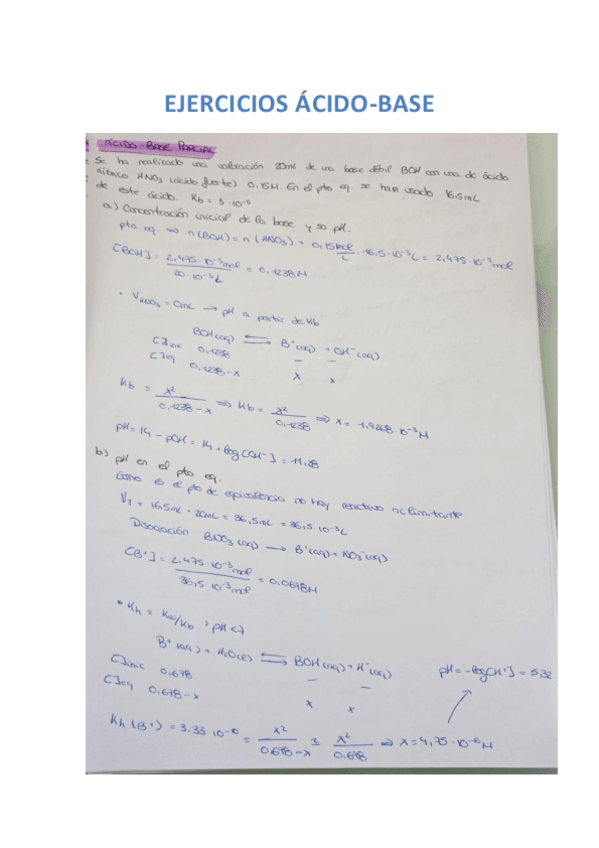 EJERCICIOS ÁCIDO-BASE
ÁCIDO-BASE PARCIAL
Se ha realizado una valoración 20ml de una base débil BOH con una de ácido
nítrico HNO₃ (ácido fuerte) 0,15M. En el pto eq. se han usado 16.5mL
de este ácido. Kb = 3·10⁻⁵
a) Concentración inicial de la base y su pH.
pto eq. ⇒ n(BOH) = n(HNO₃) = 0,15 mol/L · 16.5·10⁻³L = 2,475·10⁻³mol
[BOH] = 2,475·10⁻³mol / 20·10⁻³L = 0,1238M
• V_HNO₃ = 0mL → pH a partir de Kb
BOH(aq) ⇌ B⁺(aq) + OH⁻(aq)
C]inic 0,1238 – –
C]eq 0,1238-x x x
Kb = x²/(0,1238-x) ⇒ Kb = x²/0,1238 ⇒ x = 1.9268·10⁻³M
pH = 14 - pOH = 14 + log[OH⁻] = 11,28
b) pH en el pto eq.
Como es el pto de equivalencia no hay reactivo ni limitante
V_T = 16.5mL + 20mL = 36,5mL = 36,5·10⁻³L
Disociación BNO₃(aq) → B⁺(aq) + NO₃⁻(aq)
[B⁺] = 2,475·10⁻³mol / 36,5·10⁻³mol = 0,0678M
• Kh = Kw/Kb
B⁺(aq) + H₂O(l) ⇌ BOH(aq) + H⁺(aq)
C]inic 0,678 – –
C]eq 0,678-x x x
pH = -log[H⁺] = 5,32
Kh(B⁺) = 3.33·10⁻¹⁰ = x²/(0,678-x) = x²/0,678 ⇒ x = 4,75·10⁻⁶M